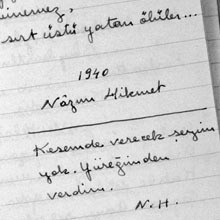 sırt üstü yatan ölüler...
1940
Nâzım Hikmet
Kesemde verecek şeyim
yok. Yüreğimden
verdim.
N.H.